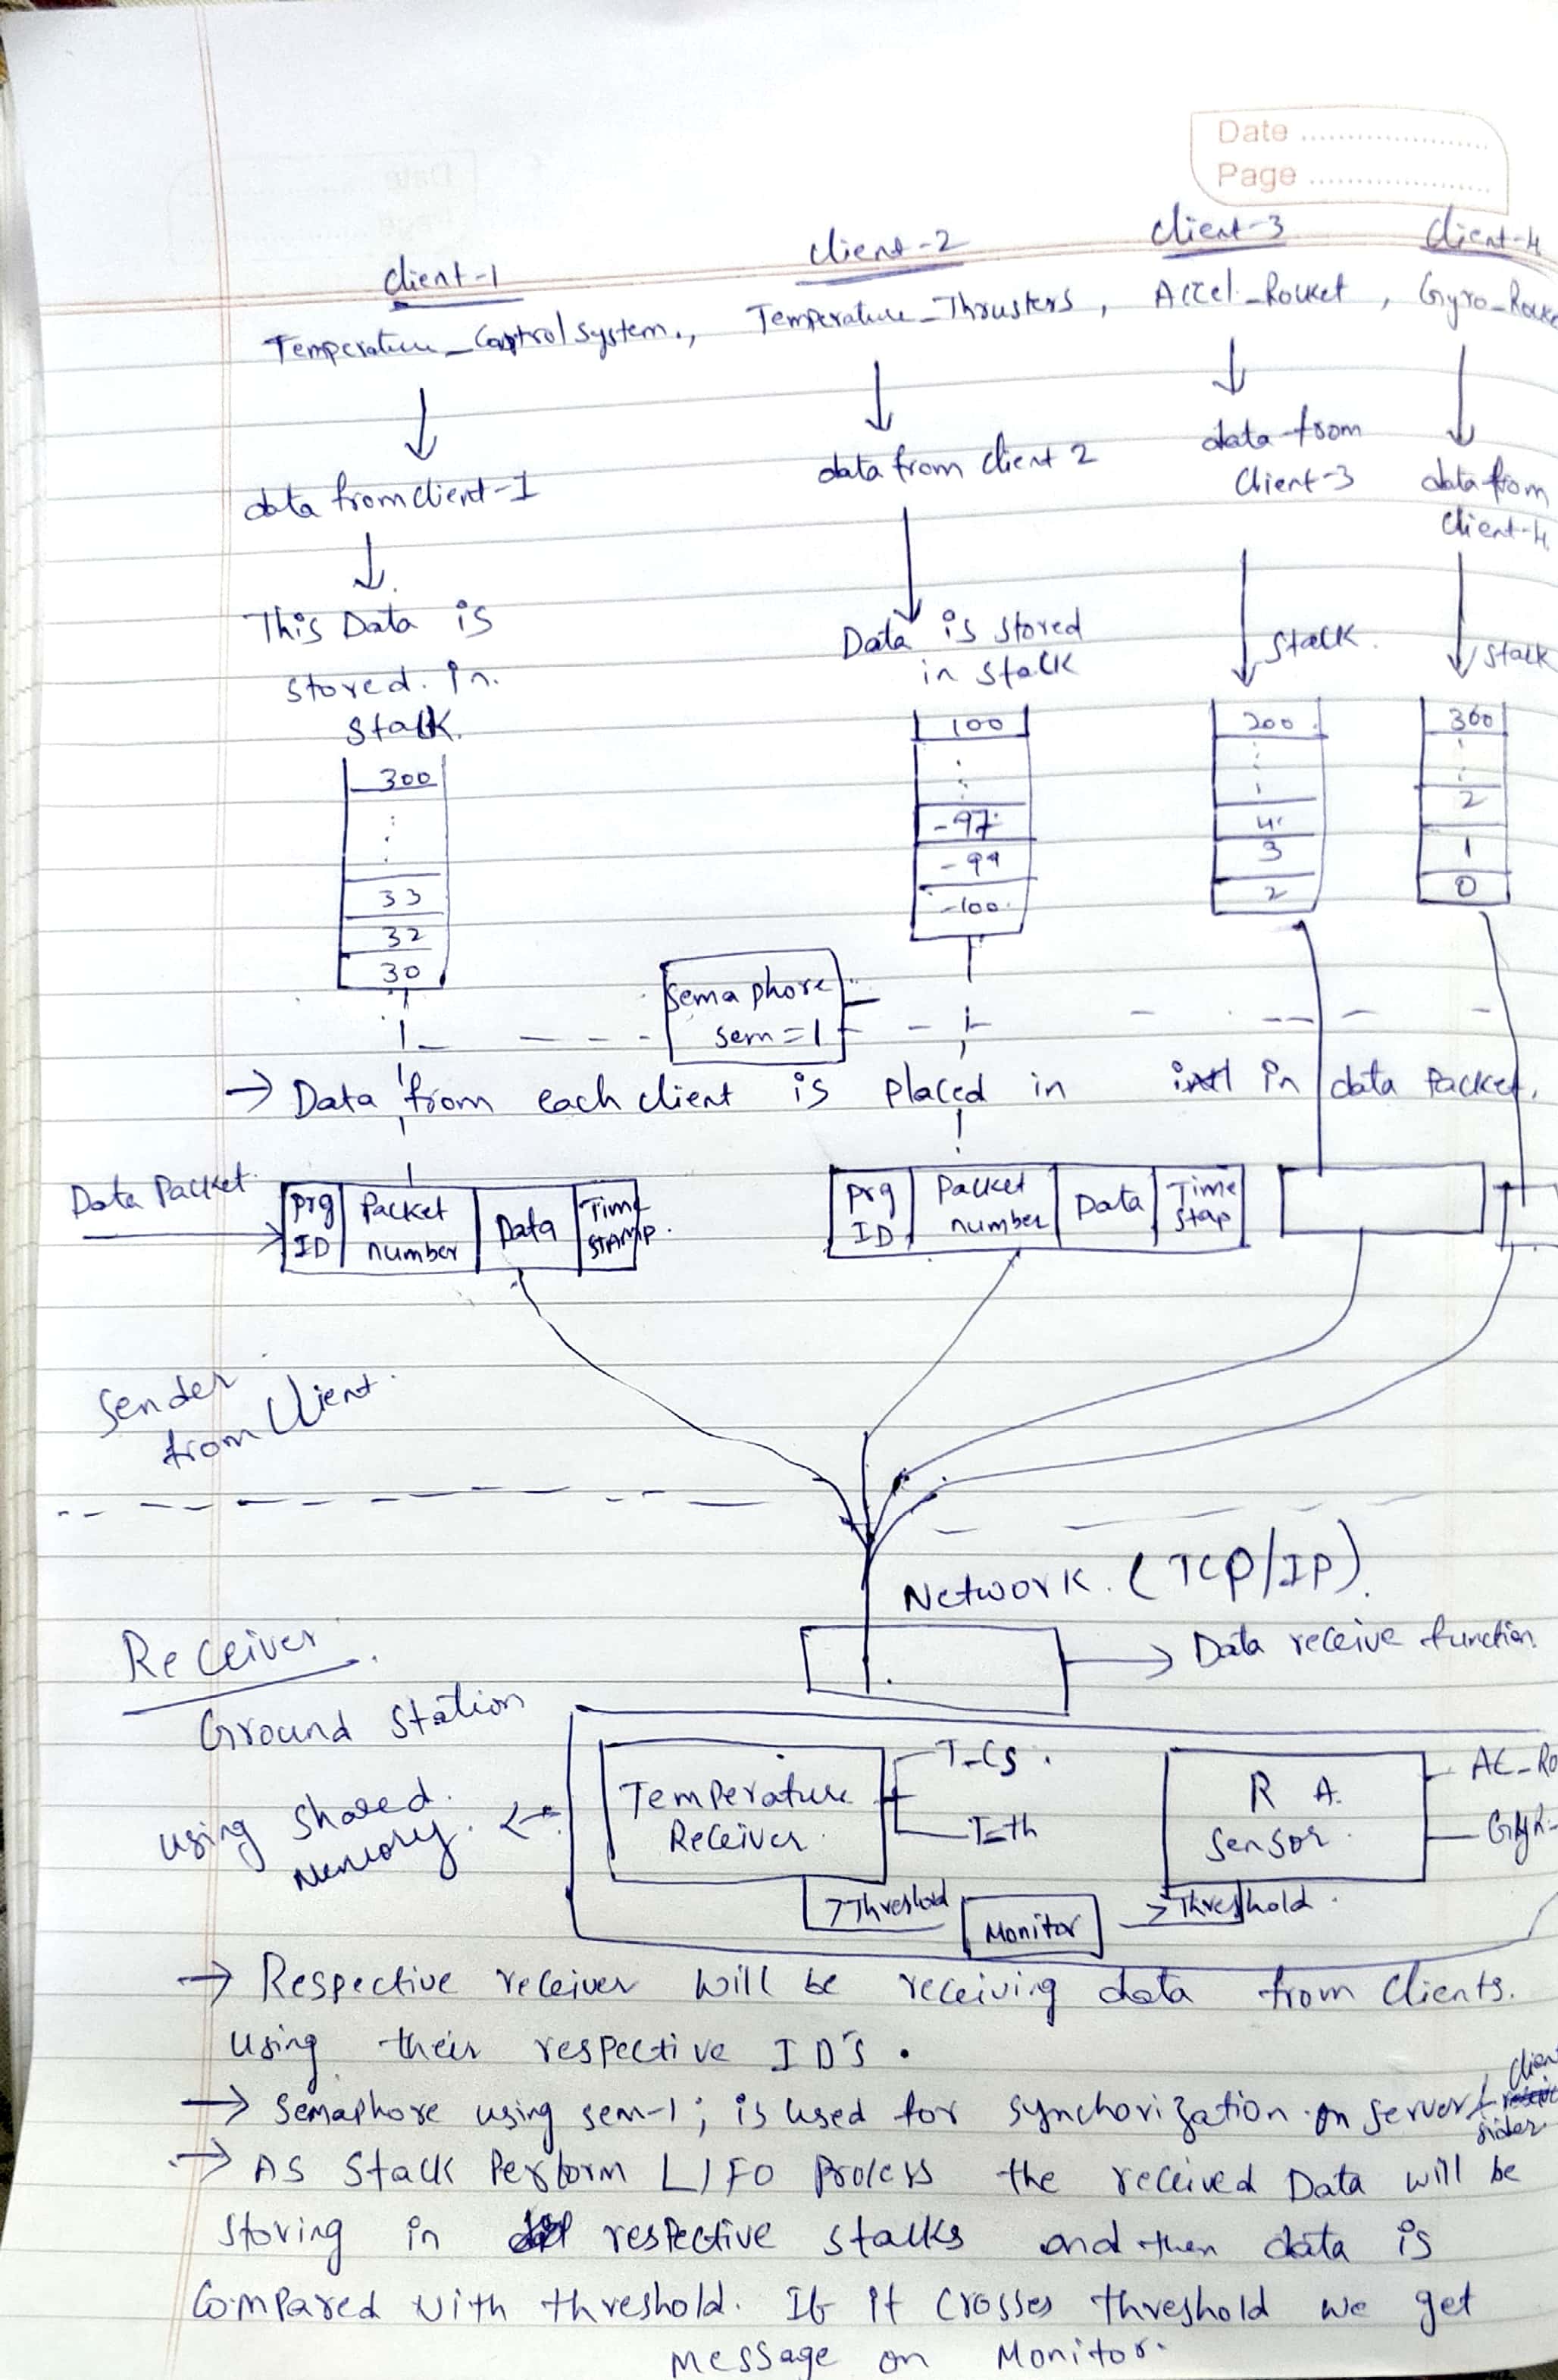 Date ....................
Page ....................
Client-1
Client-2
Client-3
Client-4
Temperature_Control System.,
Temperature_Thrusters,
Accel_Rocket,
Gyro_Rocke
data from client-1
data from client 2
data from
Client-3
data from
Client-4.
This Data is
stored. in.
stack.
Data is stored
in stack
stack.
stack
300
33
32
30
100
-97
-99
-100
200
4
3
2
360
2
1
0
Semaphore
sem=1
→ Data from each client is placed in in data Packet.
Data Packet.
prg
ID
Packet
number
Data
Time
STAMP.
prg
ID
Packet
number
Data
Time
stap
Sender
from Client.
Network. (TCP/IP).
Data receive function
Receiver.
Ground Station
using shared.
memory.
Temperature
Receiver.
T_CS.
T_th
R A.
Sensor.
AC_Ro
>Threshold
Monitor
> Threshold.
→ Respective receiver will be receiving data from Clients.
using their respective ID's.
→ Semaphore using sem-1; is used for synchorization on server / client
sides
→ AS Stack Perform LIFO Process the received Data will be
storing in respective stacks and then data is
Compared with threshold. If it crosses threshold we get
message on Monitor.